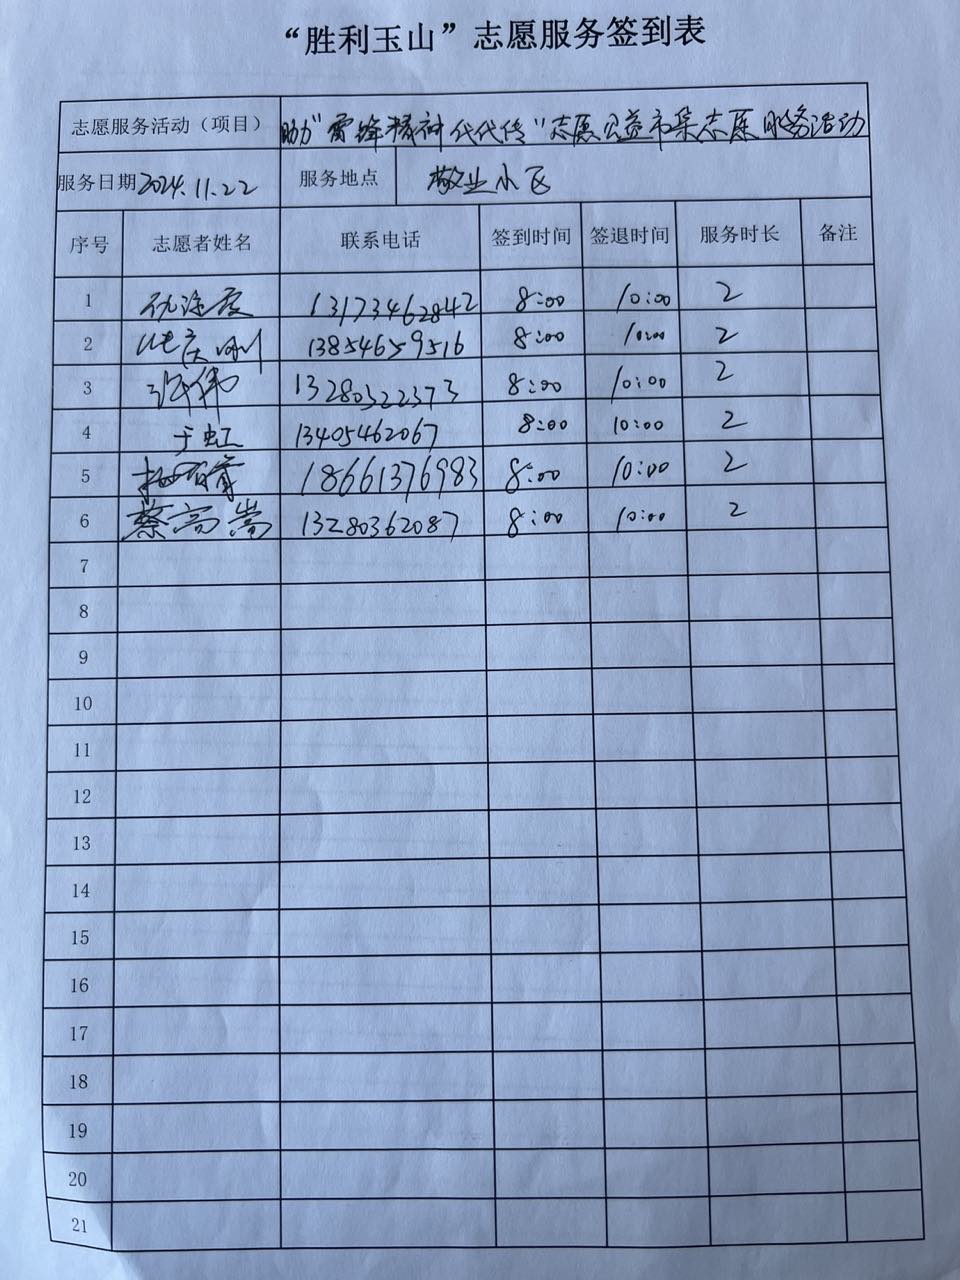 “胜利玉山”志愿服务签到表
志愿服务活动（项目） 助力“雷锋精神代代传”志愿公益市集志愿服务活动
服务日期 2024.11.22 服务地点 敬业小区
序号 志愿者姓名 联系电话 签到时间 签退时间 服务时长 备注
1 13173462842 8:00 10:00 2
2 13854659516 8:00 10:00 2
3 许伟 13280322373 8:00 10:00 2
4 于虹 13405462067 8:00 10:00 2
5 18661376983 8:00 10:00 2
6 蔡高嵩 13280362087 8:00 10:00 2
7
8
9
10
11
12
13
14
15
16
17
18
19
20
21